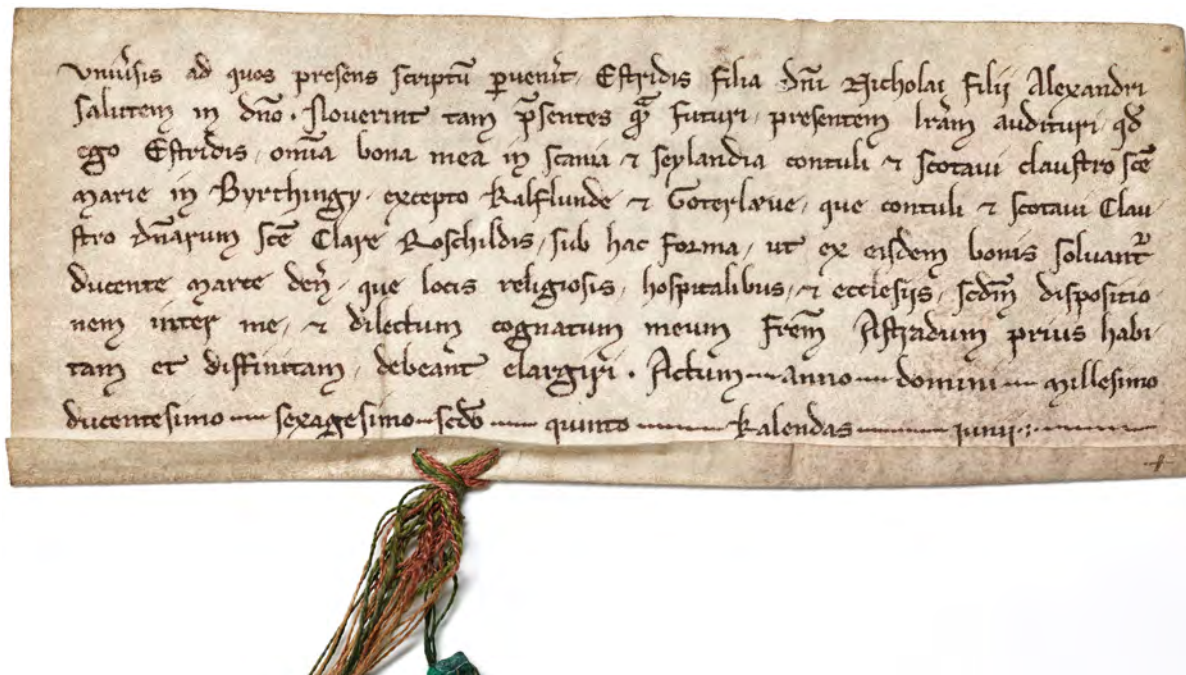 Vniũsis ad quos presens scriptũ ꝑuenĩt. Estridis filia dñi Nicholai filij Alexandri
salutem in dño. Nouerint tam p̃sentes q̃ futuri. presentem lrãm audituri. qđ
ego Estridis. om̃ia bona mea in scania ⁊ seylandia contuli ⁊ scotaui claustro sc̃e
marie in Byrthingy. excepto kalflunde ⁊ Goterlæue. que contuli ⁊ scotaui Clau
stro dñarum sc̃e Clare Roschildis. sub hac forma. ut ex eisdem bonis soluant᷑
ducente marce deñ. que locis religiosis. hospitalibus. ⁊ ecclesijs. scđm dispositio
nem inter me. ⁊ dilectum cognatum meum frẽm Astradum prius habi
tam et diffinitam. debeant elargiri. Actum anno domini millesimo
ducentesimo sexagesimo scđo quinto kalendas iunij.